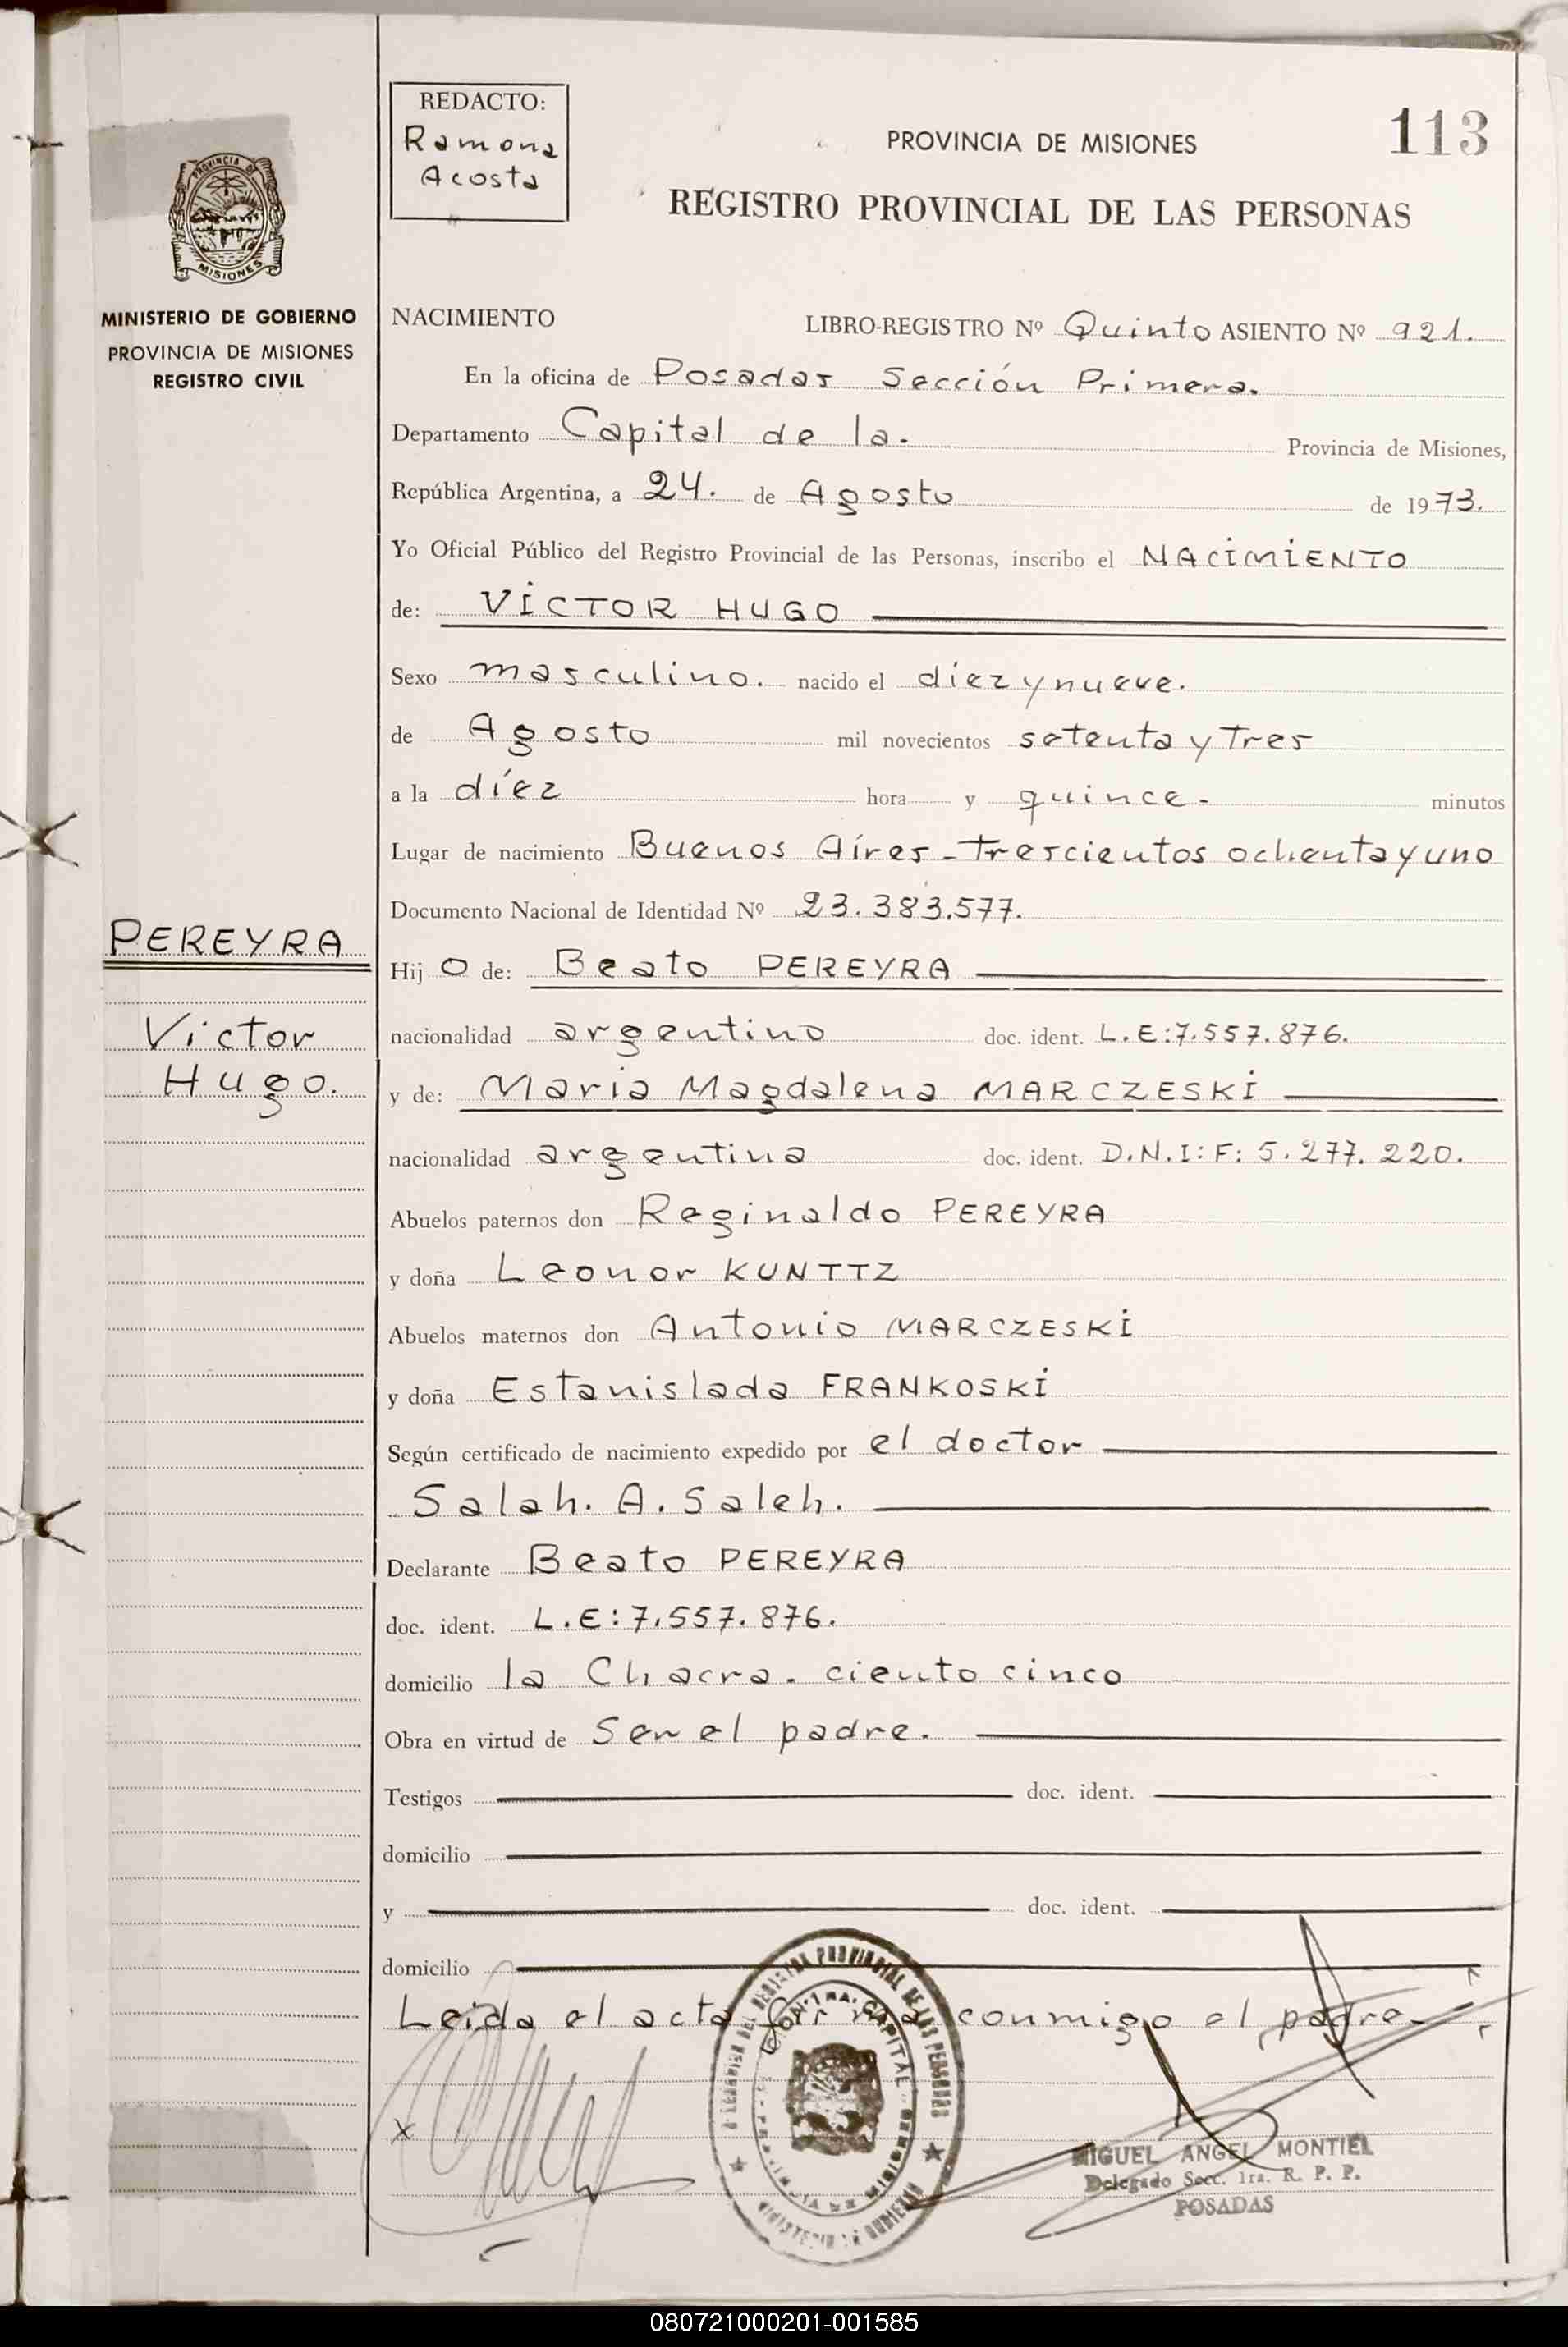 REDACTO:
Ramona
Acosta
113
PROVINCIA DE MISIONES
REGISTRO PROVINCIAL DE LAS PERSONAS
PROVINCIA DE
MISIONES
MINISTERIO DE GOBIERNO
PROVINCIA DE MISIONES
REGISTRO CIVIL
NACIMIENTO LIBRO-REGISTRO Nº Quinto ASIENTO Nº 921.
En la oficina de Posadas Sección Primera.
Departamento Capital de la. Provincia de Misiones,
República Argentina, a 24. de Agosto de 1973.
Yo Oficial Público del Registro Provincial de las Personas, inscribo el NACIMIENTO
de: VICTOR HUGO
Sexo masculino. nacido el diez y nueve.
de Agosto mil novecientos setenta y Tres
a la díez hora y quince. minutos
Lugar de nacimiento Buenos Aíres - Trescientos ochenta y uno
Documento Nacional de Identidad Nº 23.383.577.
PEREYRA
Victor
Hugo.
Hijo de: Beato PEREYRA
nacionalidad argentino doc. ident. L.E:7.557.876.
y de: Maria Magdalena MARCZESKI
nacionalidad argentina doc. ident. D.N.I:F: 5.277.220.
Abuelos paternos don Reginaldo PEREYRA
y doña Leonor KUNTTZ
Abuelos maternos don Antonio MARCZESKI
y doña Estanislada FRANKOSKI
Según certificado de nacimiento expedido por el doctor
Salah. A. Saleh.
Declarante Beato PEREYRA
doc. ident. L.E:7.557.876.
domicilio la Chacra. ciento cinco
Obra en virtud de Ser el padre.
Testigos doc. ident.
domicilio
y doc. ident.
domicilio
Leida el acta firma conmigo el padre.
x
MIGUEL ANGEL MONTIEL
Delegado Secc. 1ra. R. P. P.
POSADAS
080721000201-001585